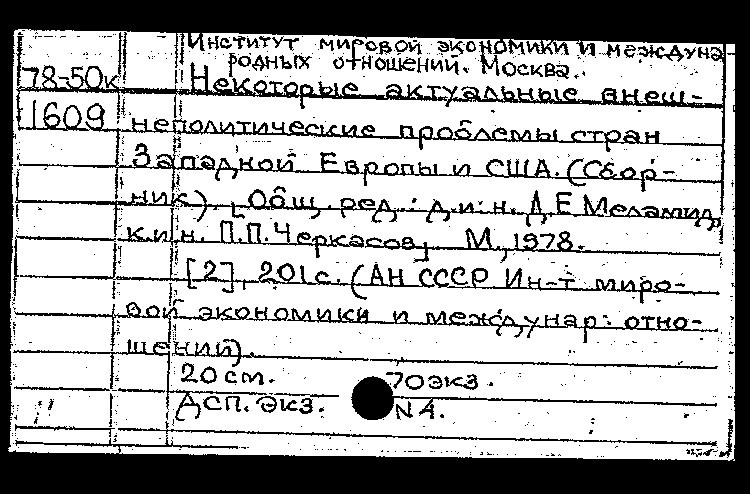 Институт мировой экономики и междуна
родных отношений. Москва.
78-50к Некоторые актуальные внеш-
1609 неполитические проблемы стран
Западной Европы и США. (Сбор-
ник). [Общ. ред.: д.и.н. Д.Е Меламид,
к.и.н. П.П. Черкасов]. М., 1978.
[2], 201с. (АН СССР Ин-т миро-
вой экономики и междунар. отно-
шений).
20 см. 70 экз.
ДСП. Экз. N 4.